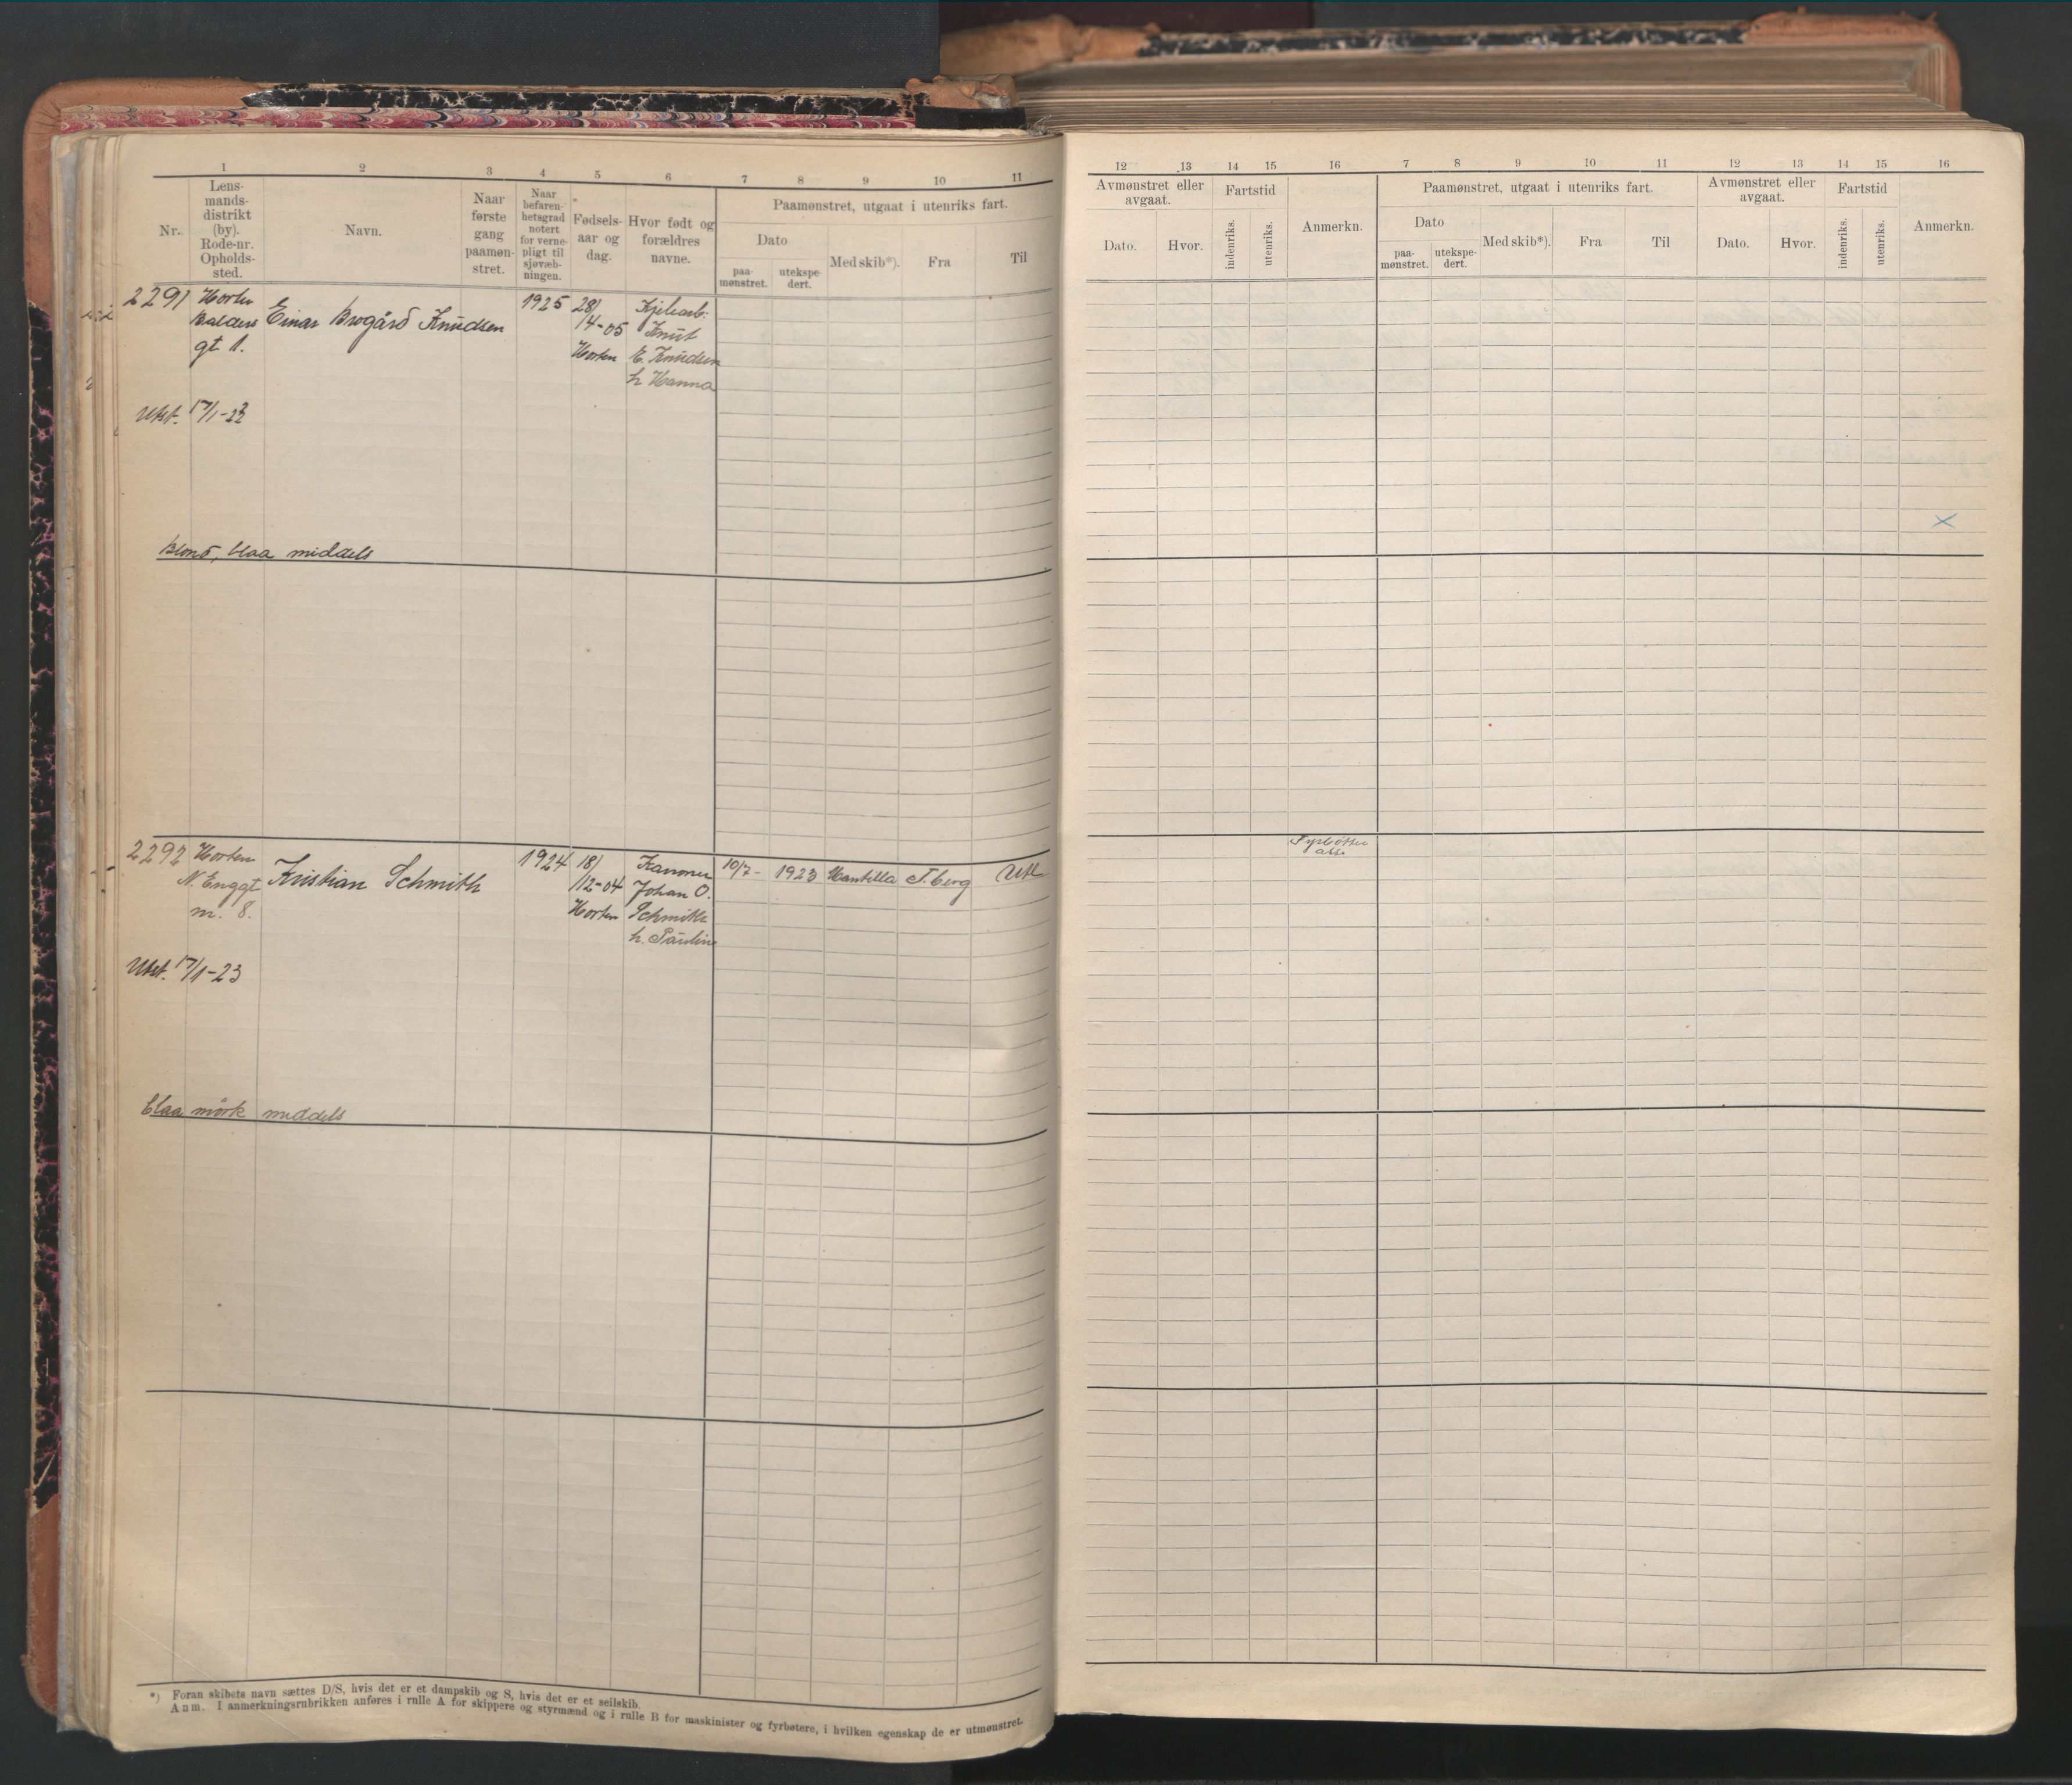 1 2 3 4 5 6 7 8 9 10 11
Nr.
Lens-
mands-
distrikt
(by).
Rode-nr.
Opholds-
sted.
Navn.
Naar
første
gang
paamøn-
stret.
Naar
befaren-
hetsgrad
notert
for verne-
pligt til
sjøvæb-
ningen.
Fødsels-
aar og
dag.
Hvor født og
forældres
navne.
Paamønstret, utgaat i utenriks fart.
Dato
paa-
mønstret.
utekspe-
dert.
Med skib*).
Fra
Til
2291 Horten
Balders
gt 1.
Einar Brogård Knudsen
1925
28/
/4-05
Horten
Kjelearb.
Knut
E. Knudsen
h Hanna
Utst. 17/1-23
Blond, blaa middels
2292 Horten
N. Enggt
nr. 8.
Kristian Schmith
1924
18/
/12-04
Horten
Kanoner
Johan O.
Schmith
h. Pauline
10/7- 1923 Mantilla T.berg Utl
Utst. 17/1-23
blaa mörk middels
*) Foran skibets navn sættes D/S, hvis det er et dampskib og S, hvis det er et seilskib.
Anm. I anmerkningsrubrikken anføres i rulle A for skippere og styrmænd og i rulle B for maskinister og fyrbøtere, i hvilken egenskap de er utmønstret.
12 13 14 15 16 7 8 9 10 11 12 13 14 15 16
Avmønstret eller
avgaat.
Dato.
Hvor.
Fartstid
indenriks.
utenriks.
Anmerkn.
Paamønstret, utgaat i utenriks fart.
Dato
paa-
mønstret.
utekspe-
dert.
Med skib*).
Fra
Til
Avmønstret eller
avgaat.
Dato.
Hvor.
Fartstid
indenriks.
utenriks.
Anmerkn.
Fyrbötter
ass.